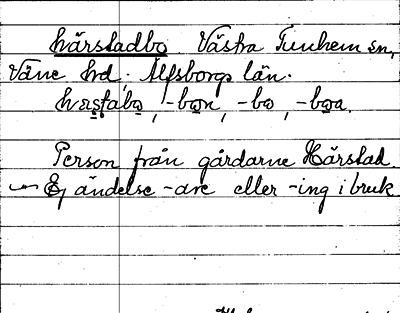 hårstadbo. Västra Tunhem sn,
Väne hd. Älfsborgs län.
hṳstabo, -bon, -bo, -boa.
Person från gårdarne Hårstad.
Ej ändelse -are eller -ing i bruk